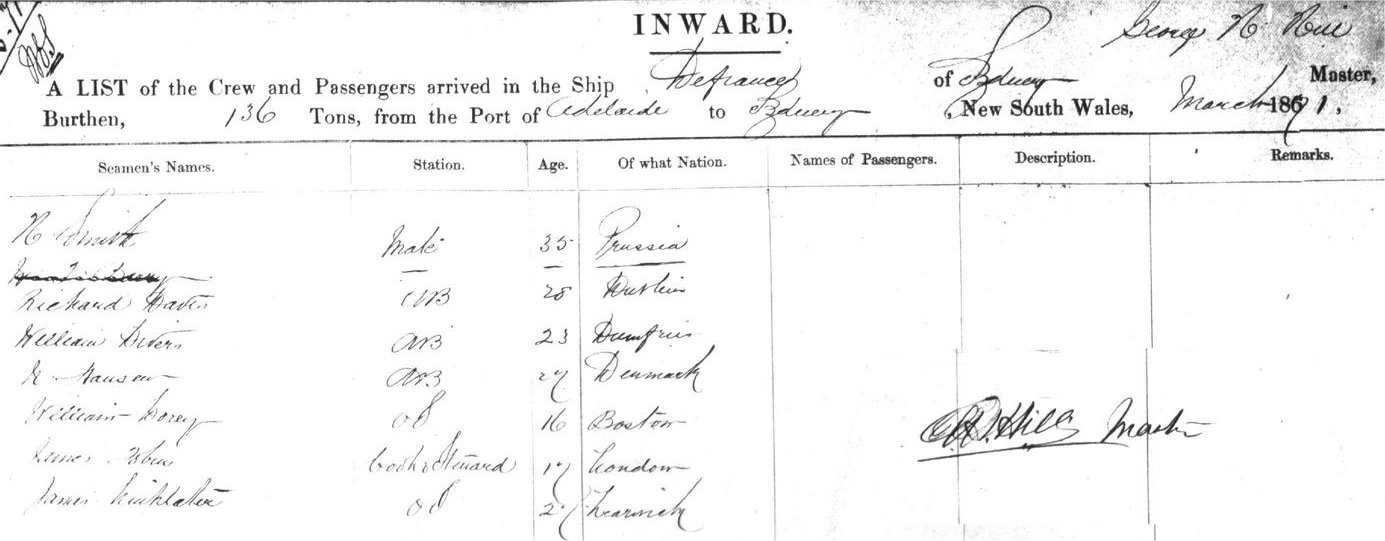 INWARD.
George N Hill
A LIST of the Crew and Passengers arrived in the Ship Defiance of Sydney Master,
Burthen, 136 Tons, from the Port of Adelaide to Sydney, New South Wales, March 1871.
Seamen's Names. Station. Age. Of what Nation. Names of Passengers. Description. Remarks.
N Smith Mate 35 Prussia
Richard AB 28 Dublin
William AB 23 Dumfries
N Hansen AB 27 Denmark
William OS 16 Boston
Hill Master
James Cook & Steward 17 London
James OS 2 Lerwick